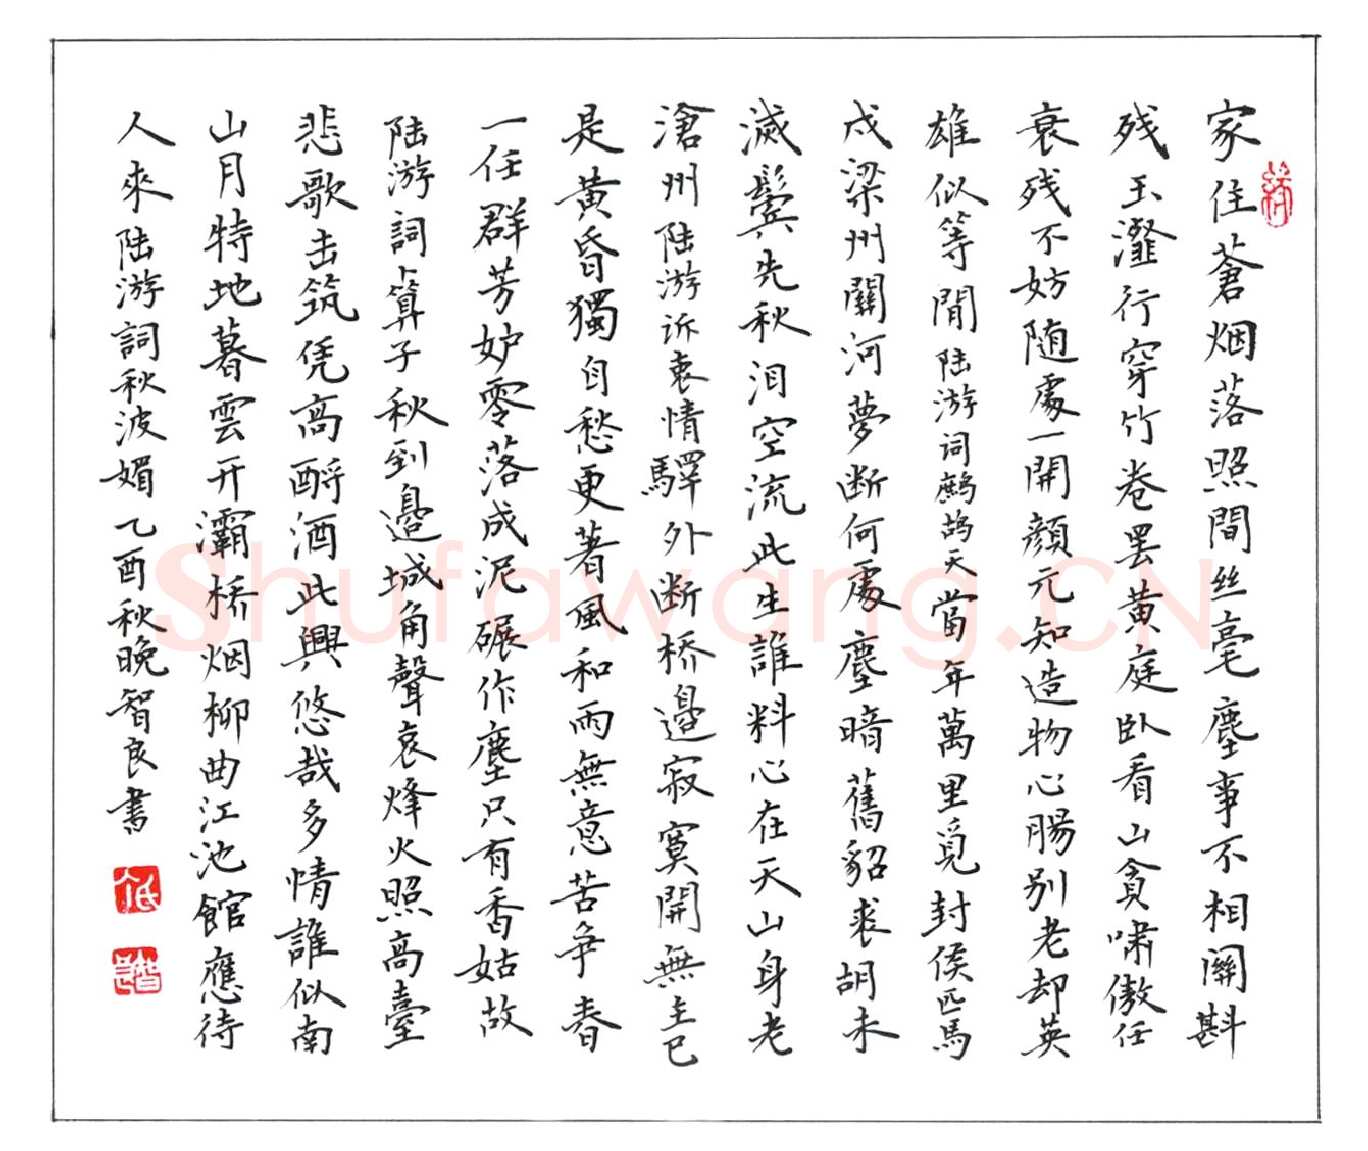 家住蒼烟落照間丝毫塵事不相關斟
残玉瀣行穿竹卷罢黄庭卧看山貪啸傲任
衰残不妨随處一開顔元知造物心腸别老却英
雄似等閒陆游词鹧鸪天當年萬里覓封侯匹馬
戍梁州關河夢断何處塵暗舊貂裘胡未
滅鬓先秋泪空流此生誰料心在天山身老
滄州陆游诉衷情驛外断桥邉寂寞開無主已
是黄昏獨自愁更著風和雨無意苦争春
一任群芳妒零落成泥碾作塵只有香姑故
陆游詞卜算子秋到邉城角聲哀烽火照高臺
悲歌击筑凭高酹酒此興悠哉多情誰似南
山月特地暮雲开灞桥烟柳曲江池館應待
人來陆游詞秋波媚乙酉秋晚智良書
Shufawang.CN